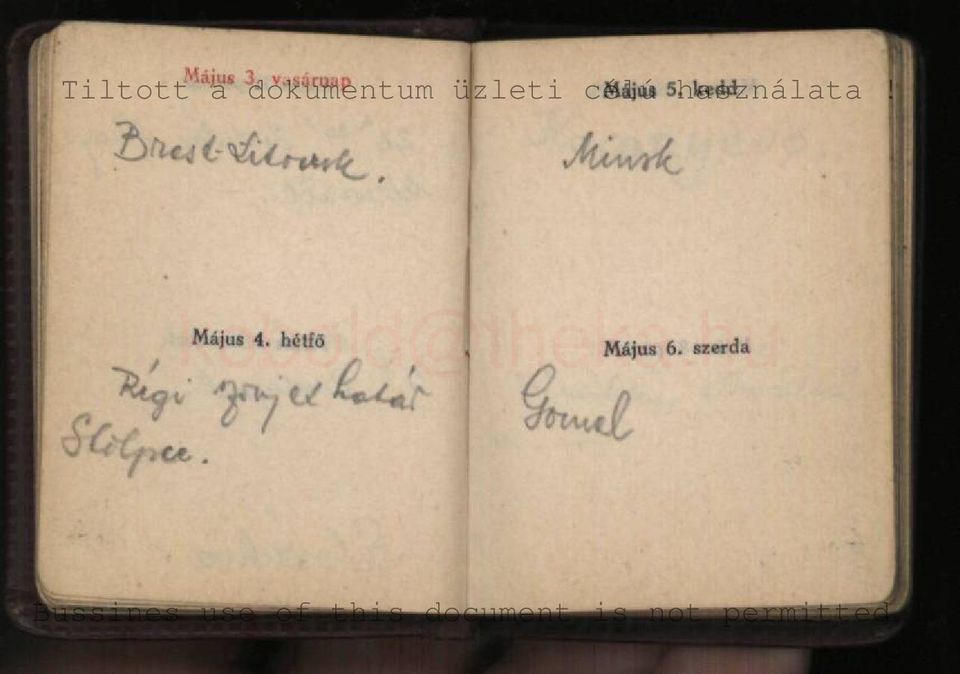 Tiltott a dokumentum üzleti célú használata !
Május 3. vasárnap
Brest-Litowsk.
Május 4. hétfő
Régi szovjet határ
Stolpce.
Május 5. kedd
Minsk
Május 6. szerda
Gomel
kobold@theka.hu
Bussines use of this document is not permitted